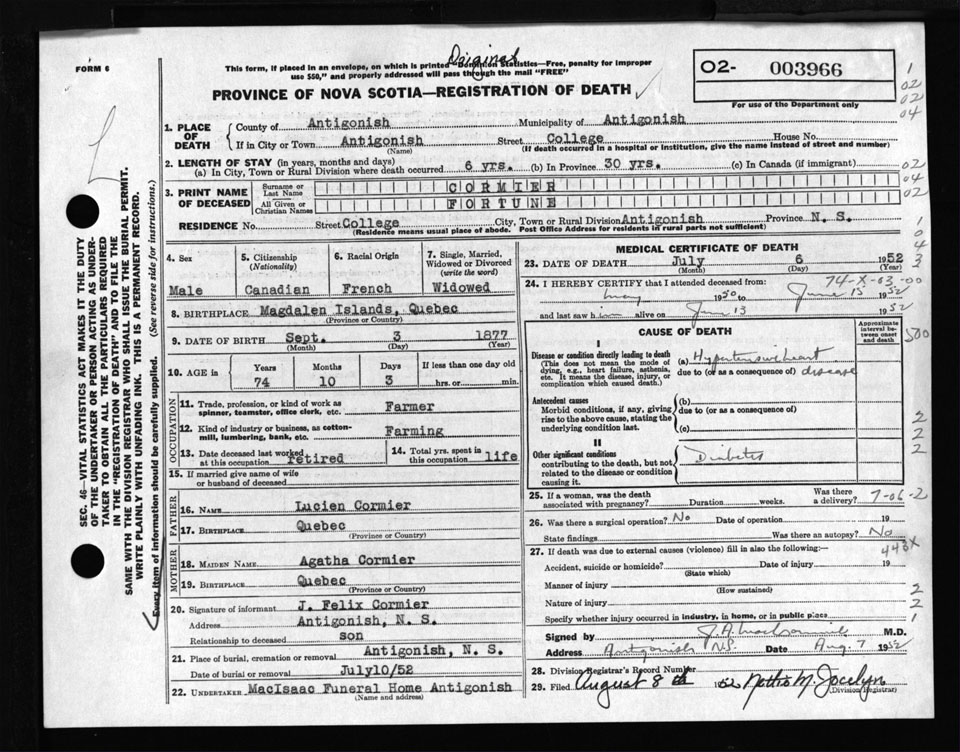 Original
FORM 6
This form, if placed in an envelope, on which is printed "Dominion Statistics—Free, penalty for improper
use $50," and properly addressed will pass through the mail "FREE"
O2- 003966
For use of the Department only
PROVINCE OF NOVA SCOTIA—REGISTRATION OF DEATH
1. PLACE OF DEATH { County of Antigonish Municipality of Antigonish
If in City or Town Antigonish Street College House No.
(Name) (If death occurred in a hospital or institution, give the name instead of street and number)
2. LENGTH OF STAY (in years, months and days)
(a) In City, Town or Rural Division where death occurred 6 yrs. (b) In Province 30 yrs. (c) In Canada (if immigrant)
3. PRINT NAME OF DECEASED { Surname or Last Name CORMIER
All Given or Christian Names FORTUNE
RESIDENCE No. Street College City, Town or Rural Division Antigonish Province N. S.
(Residence means usual place of abode. Post Office Address for residents in rural parts not sufficient)
4. Sex Male
5. Citizenship (Nationality) Canadian
6. Racial Origin French
7. Single, Married, Widowed or Divorced (write the word) Widowed
8. BIRTHPLACE Magdalen Islands, Quebec
(Province or Country)
9. DATE OF BIRTH Sept. 3 1877
(Month) (Day) (Year)
10. AGE in Years Months Days If less than one day old
74 10 3 hrs. or min.
OCCUPATION
11. Trade, profession, or kind of work as spinner, teamster, office clerk, etc. Farmer
12. Kind of industry or business, as cotton-mill, lumbering, bank, etc. Farming
13. Date deceased last worked at this occupation retired
14. Total yrs. spent in this occupation life
15. If married give name of wife or husband of deceased
FATHER
16. NAME Lucien Cormier
17. BIRTHPLACE Quebec
(Province or Country)
MOTHER
18. MAIDEN NAME Agatha Cormier
19. BIRTHPLACE Quebec
(Province or Country)
20. Signature of informant J. Felix Cormier
Address Antigonish, N. S.
Relationship to deceased son
21. Place of burial, cremation or removal Antigonish, N. S.
Date of burial or removal July10/52
22. UNDERTAKER MacIsaac Funeral Home Antigonish
(Name and address)
MEDICAL CERTIFICATE OF DEATH
23. DATE OF DEATH July 6 1952
(Month) (Day) (Year)
74-X-03-00
24. I HEREBY CERTIFY that I attended deceased from:
May 1950 to June 13 1952
and last saw him alive on June 13 1952
CAUSE OF DEATH
Approximate interval between onset and death
I
Disease or condition directly leading to death (a) Hypertensive heart
(This does not mean the mode of dying, e.g., heart failure, asthenia, etc. It means the disease, injury, or complication which caused death.)
due to (or as a consequence of) disease
Antecedent causes
Morbid conditions, if any, giving rise to the above cause, stating the underlying condition last.
(b)
due to (or as a consequence of)
(c)
II
Other significant conditions contributing to the death, but not related to the disease or condition causing it.
Diabetes
25. If a woman, was the death associated with pregnancy? Duration weeks. Was there a delivery? 7-06-2
26. Was there a surgical operation? No Date of operation 19
State findings Was there an autopsy? No
443X
27. If death was due to external causes (violence) fill in also the following:—
Accident, suicide or homicide? Date of injury 19
(State which)
Manner of injury
(How sustained)
Nature of injury
Specify whether injury occurred in industry, in home, or in public place
Signed by M.D.
Address Antigonish N.S. Date Aug. 7 1952
28. Division Registrar's Record Number
29. Filed August 8th 1952 Nettie M. Jocelyn
(Division Registrar)
SEC. 46—VITAL STATISTICS ACT MAKES IT THE DUTY
OF THE UNDERTAKER OR PERSON ACTING AS UNDER-
TAKER TO OBTAIN ALL THE PARTICULARS REQUIRED
IN THE "REGISTRATION OF DEATH" AND TO FILE THE
SAME WITH THE DIVISION REGISTRAR WHO SHALL ISSUE THE BURIAL PERMIT.
WRITE PLAINLY WITH UNFADING INK. THIS IS A PERMANENT RECORD.
Every item of information should be carefully supplied. (See reverse side for instructions.)
1
02
02
04
02
04
02
1
0
4
3
500
2
2
2
2
2
2
1